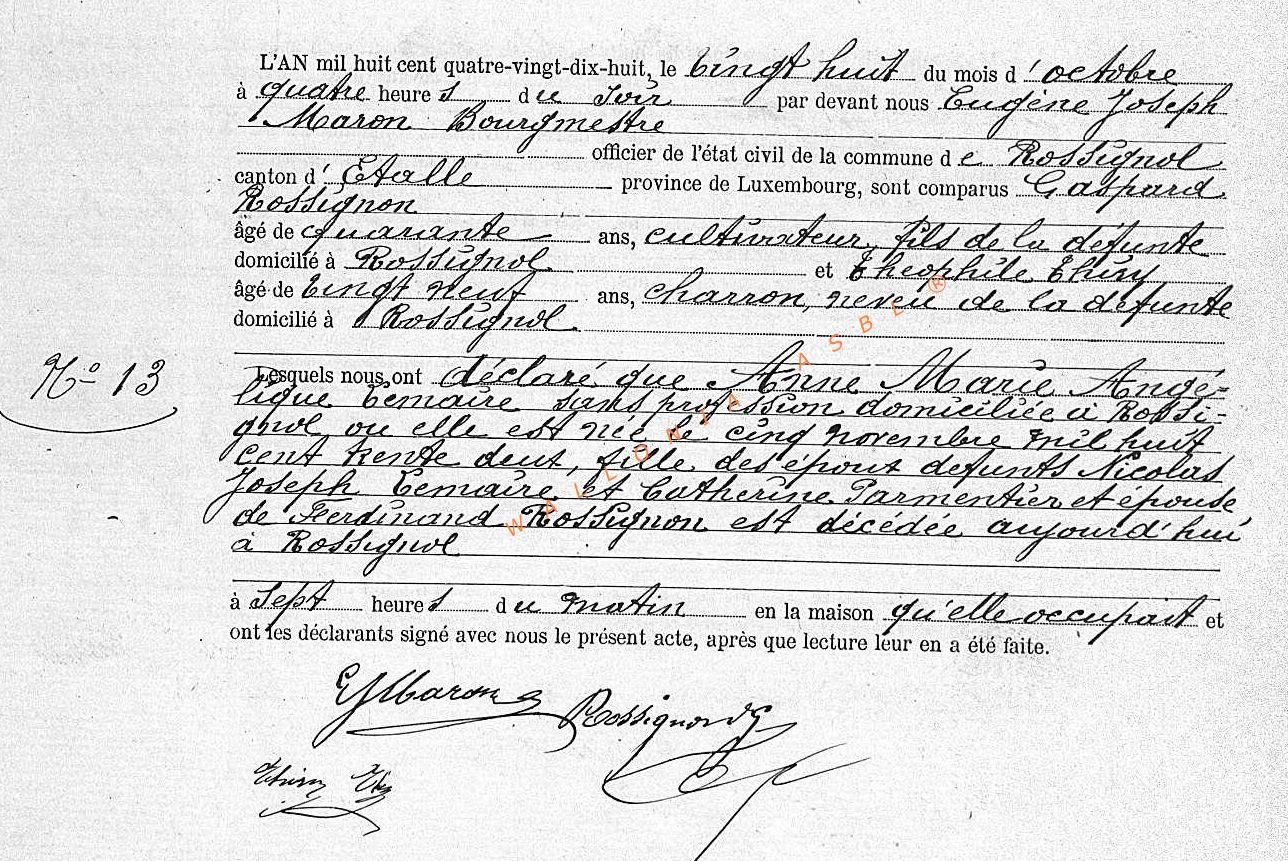 L'AN mil huit cent quatre-vingt-dix-huit, le vingt huit du mois d'octobre
à quatre heures du soir par devant nous Eugène Joseph
Maron Bourgmestre
officier de l'état civil de la commune de Rossignol
canton d'Etalle province de Luxembourg, sont comparus Gaspard
Rossignon
âgé de quarante ans, cultivateur, fils de la défunte
domicilié à Rossignol et Théophile Thiry
âgé de vingt neuf ans, charron, neveu de la défunte
domicilié à Rossignol
N° 13
Lesquels nous ont déclaré que Anne Marie Angé-
lique Lemaire sans profession domiciliée à Rossi-
gnol ou elle est née le cinq novembre mil huit
cent trente deux, fille des époux defunts Nicolas
Joseph Lemaire et Catherine Parmentier et épouse
de Ferdinand Rossignon est décédée aujourd'hui
à Rossignol
à sept heures du matin en la maison qu'elle occupait et
ont les déclarants signé avec nous le présent acte, après que lecture leur en a été faite.
EJMaron
Rossignon G
Thiry Th
WALLONIA ASBL ®